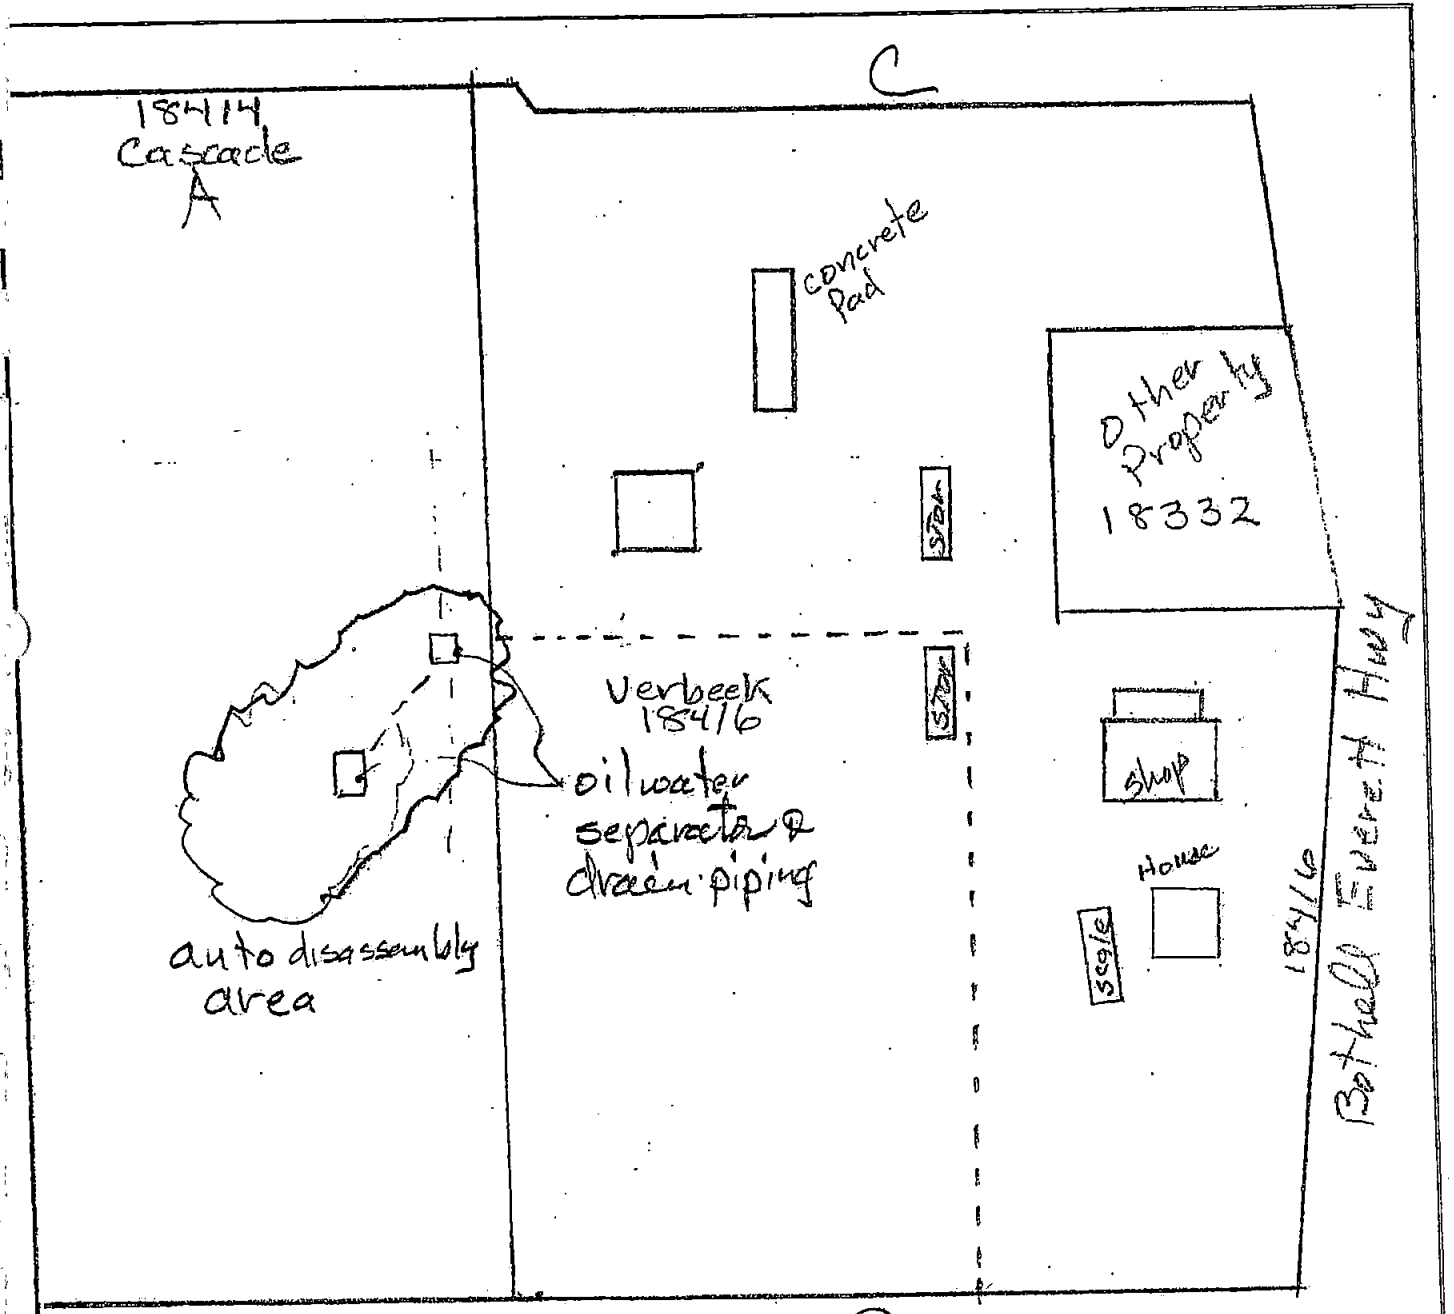 C
18414
Cascade
A
concrete
Pad
Other
Property
18332
STOR
STOR
Verbeek
18416
oil water
separator &
drain piping
auto disassembly
area
Shop
House
Scale
18416
Bothell Everett Hwy